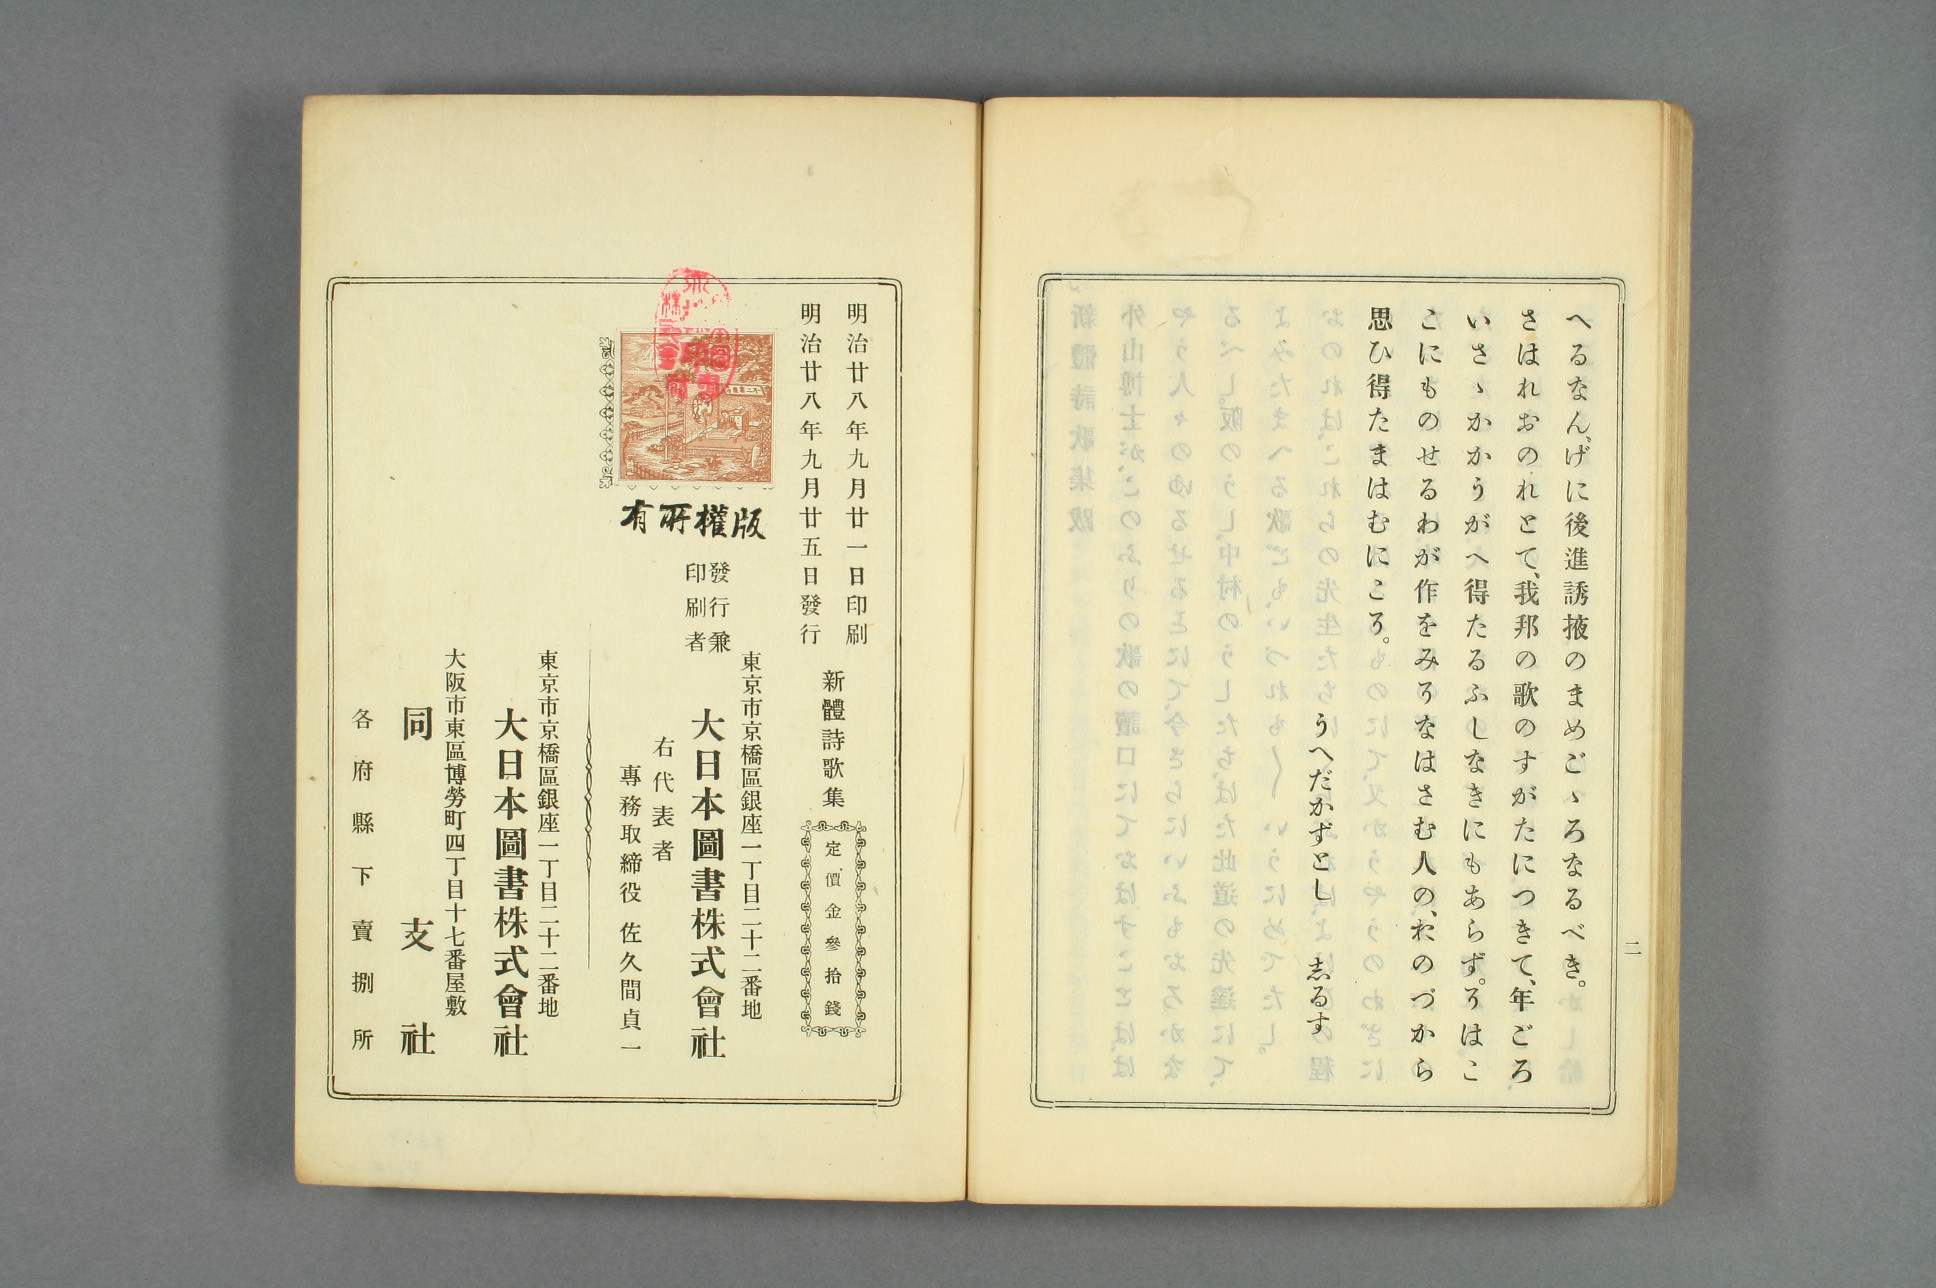 へるなん、げに後進誘掖のまめごゝろなるべき。
さはれおのれとて、我邦の歌のすがたにつきて、年ごろ
いさゝかかうがへ得たるふしなきにもあらず。そはこ
こにものせるわが作をみそなはさむ人の、おのづから
思ひ得たまはむにこそ。
うへだかずとし 志るす
二
明治廿八年九月廿一日印刷
明治廿八年九月廿五日發行
新體詩歌集
定價金參拾錢
版權所有
發行兼
印刷者
東京市京橋區銀座一丁目二十二番地
大日本圖書株式會社
右代表者
專務取締役 佐久間貞一
東京市京橋區銀座一丁目二十二番地
大日本圖書株式會社
大阪市東區博勞町四丁目十七番屋敷
同支社
各府縣下賣捌所